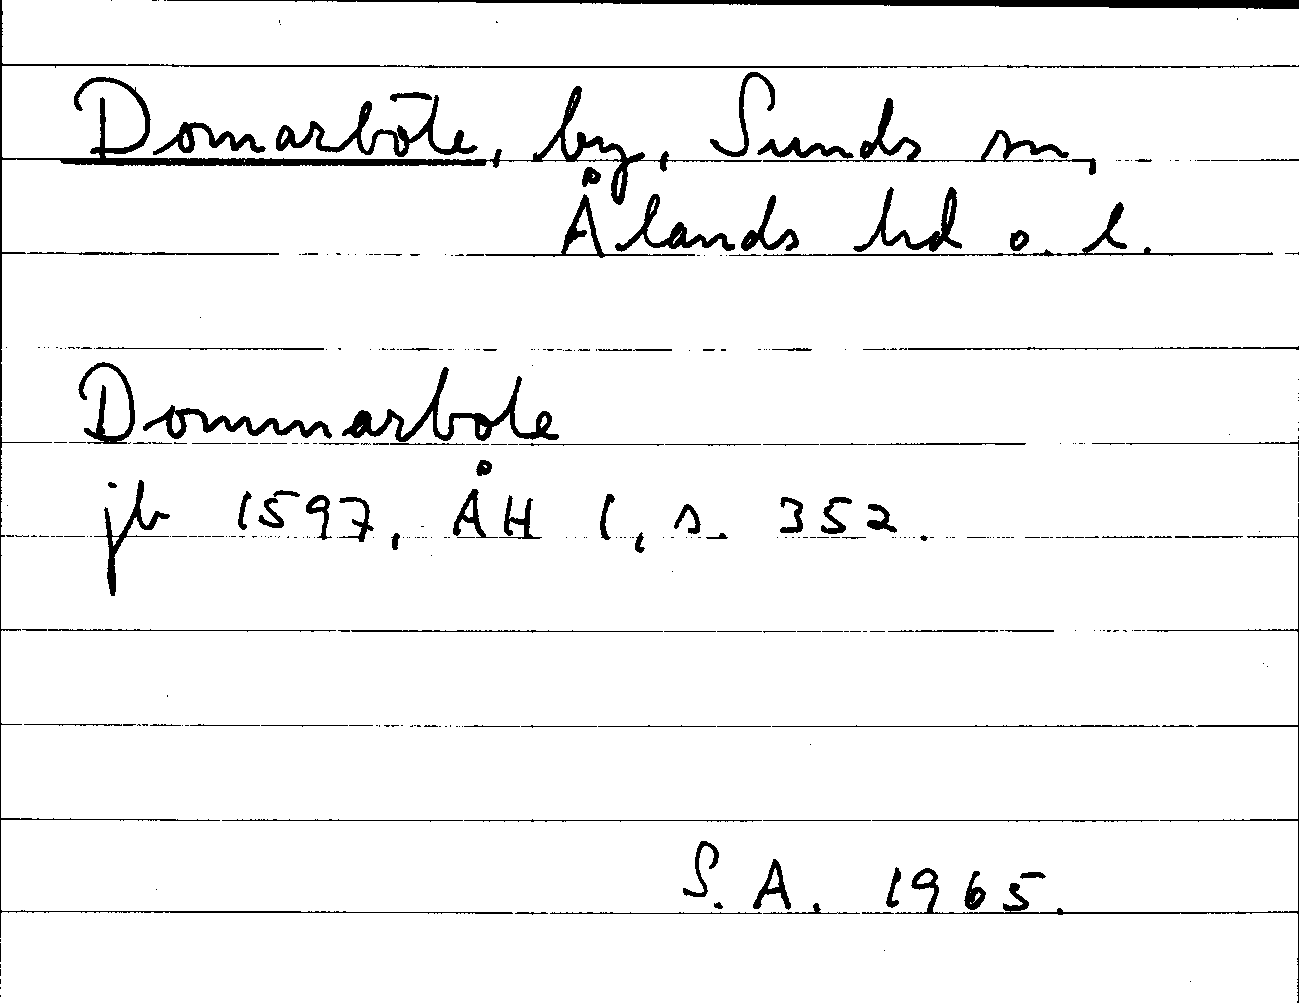 Domarböte, by, Sunds sn,
Ålands hd o. l.
Dommarbole
jb 1597, ÅH 1, s. 352.
S. A. 1965.